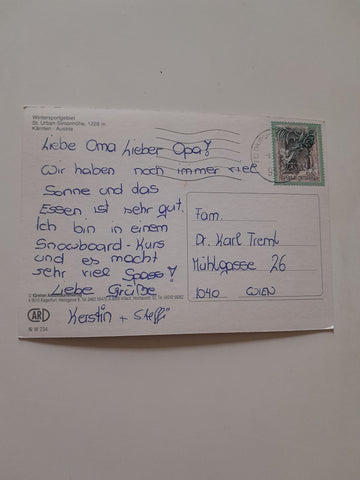 Wintersportgebiet
St. Urban-Simonhöhe, 1228 m
Kärnten - Austria
Liebe Oma Lieber Opa!
Wir haben noch immer viel
Sonne und das
Essen ist sehr gut.
Ich bin in einem
Snowboard-Kurs
und es macht
sehr viel Spass!
Liebe Grüße
Kerstin + Steffi
Fam.
Dr. Karl Treml
Mühlgasse 26
1040 WIEN
ARL
N W 234